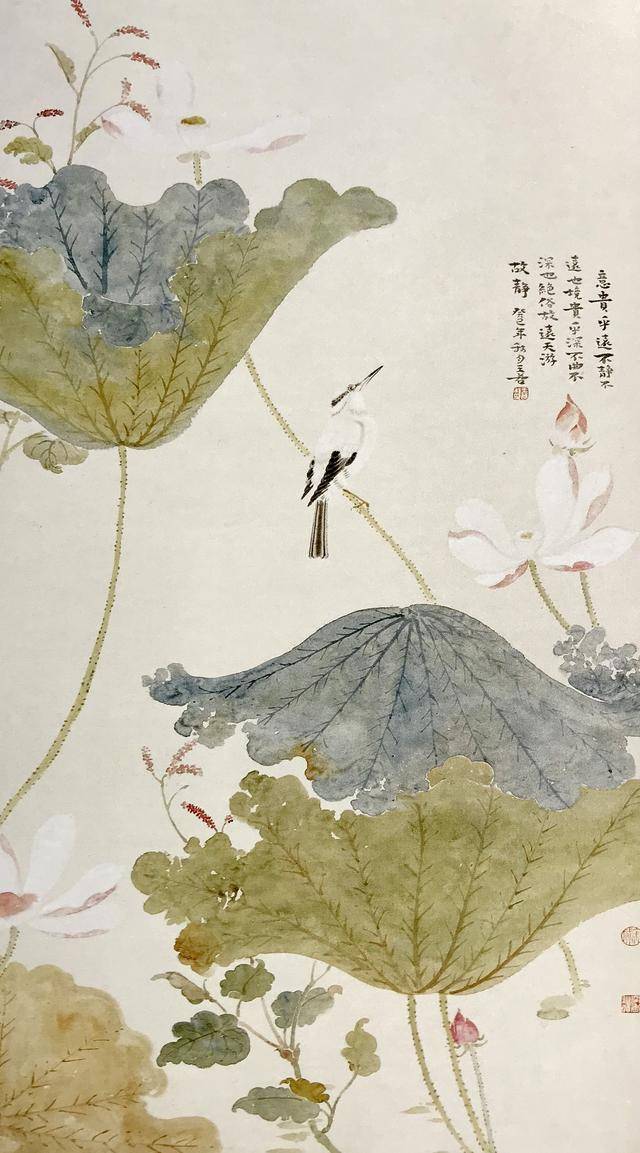 意貴乎遠不靜不
遠也境貴乎深不曲不
深也絕俗故遠天游
故靜 癸巳年秋月